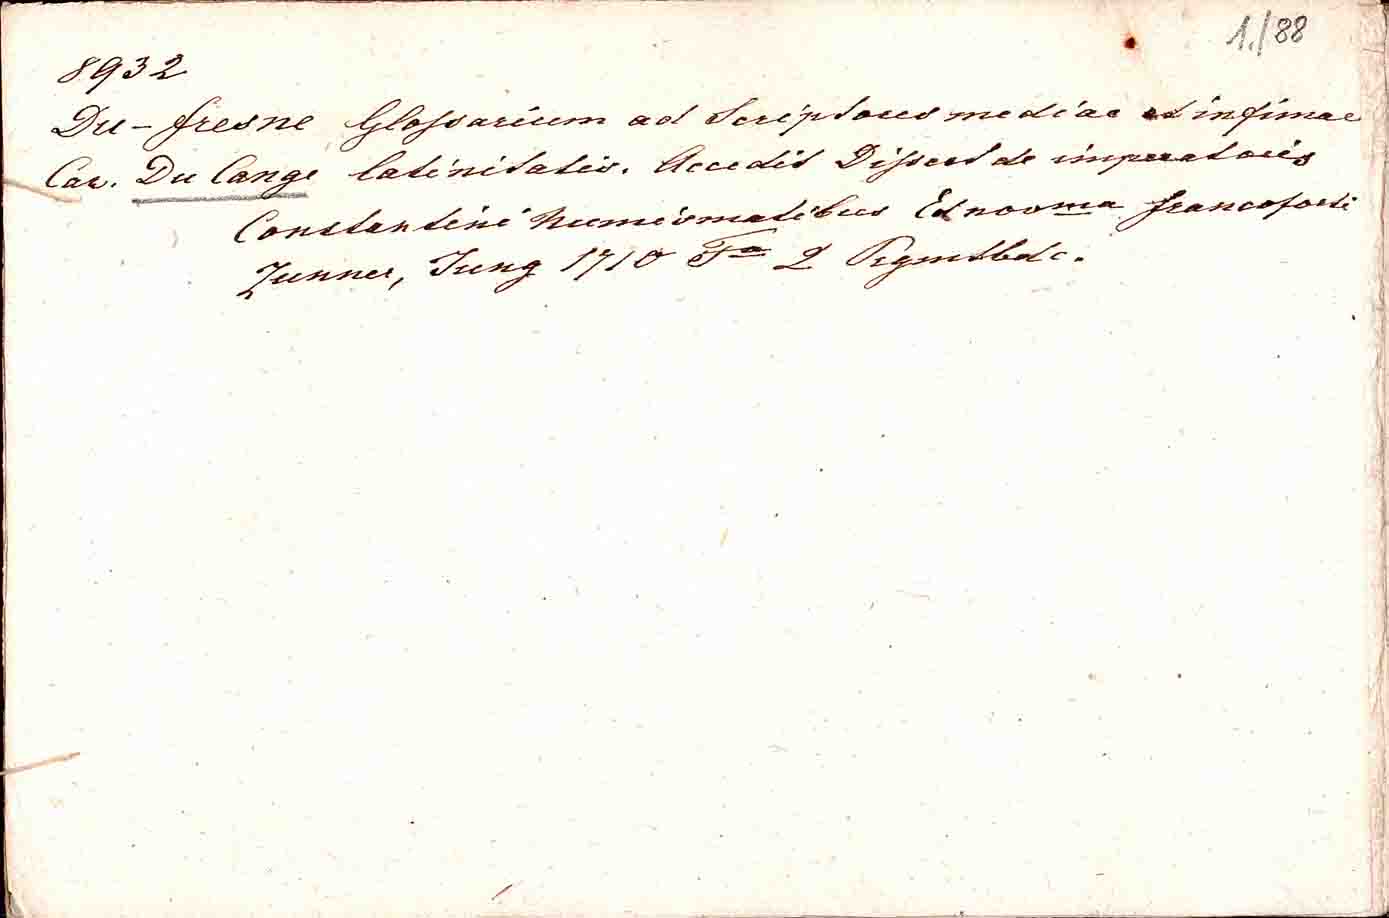 1./88
8932
Du-fresne Glossarium ad Scriptores mediae et infimae
Car. Du Cange latinitatis. Accedit Dissert de imperatoris
Constantini Numismatibus Ed nov ma Francoforti
Zunner, Jung 1710 Fo 2 Prgmtbdc.